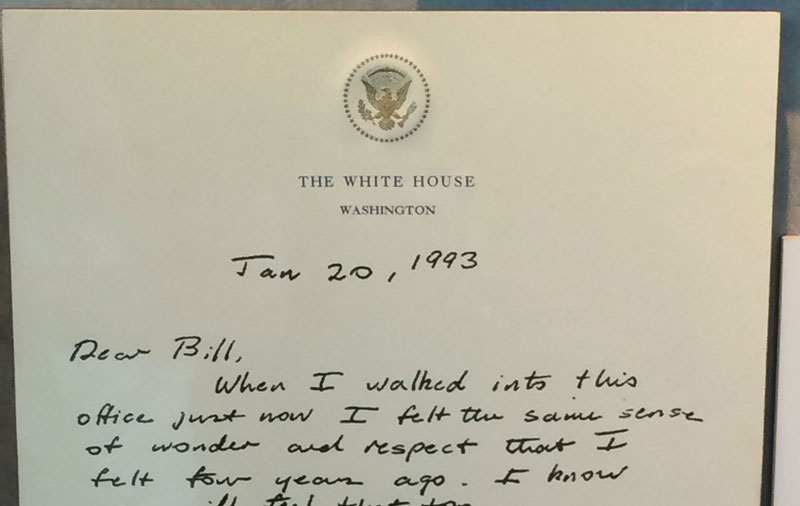 THE WHITE HOUSE
WASHINGTON
Jan 20, 1993
Dear Bill,
When I walked into this
office just now I felt the same sense
of wonder and respect that I
felt four years ago. I know
feel that too